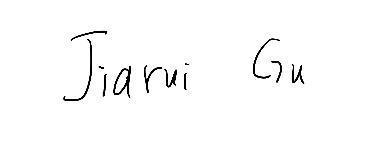 Jiarui Gu